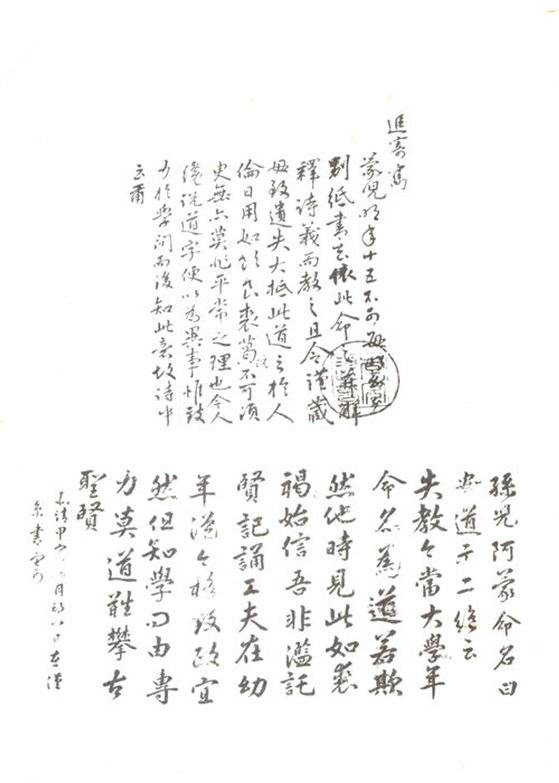 追寄寯
蒙兒明年十五不可無
別紙書去依此命之兼解
釋詩義而教之且令謹藏
毋致遺失大抵此道之於人
倫日用如飲食裘葛不可須
臾無亦莫非平常之理也今人
纔說道字便以爲異事惟致
力於學問而後知此意故詩中
云爾
孫兒阿蒙命名曰
安道示二絶云
失教今當大學年
命名爲道若欺
然他時見此如裘
褐始信吾非濫託
賢記誦工夫在幼
年從今格致政宜
然但知學問由專
力莫道難攀古
聖賢
嘉靖甲寅 月初八日在漢
京書寄